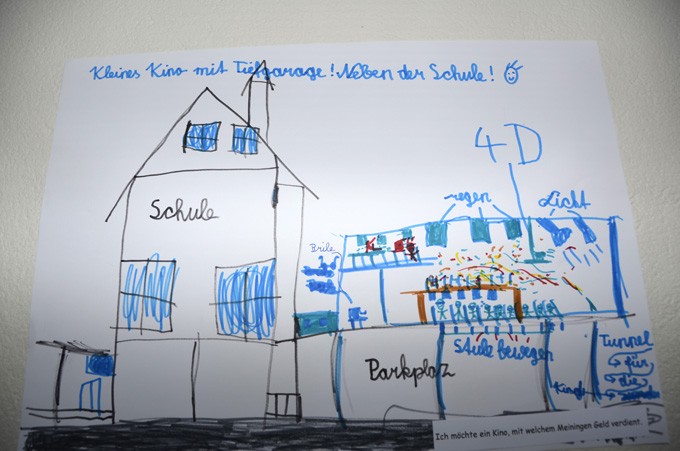 Kleines Kino mit Tiefgarage! Neben der Schule!
4D
regen
Licht
Schule
Brile
Stüle bewegen
Parkplaz
Tunnel
für
die
Ich möchte ein Kino, mit welchem Meiningen Geld verdient.